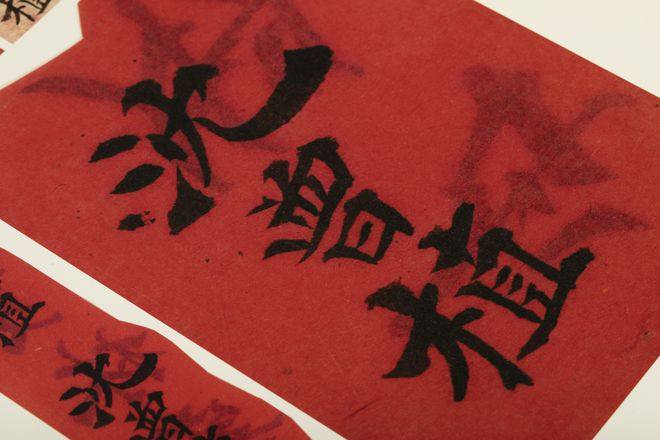 植
沈曾植
植
沈曾